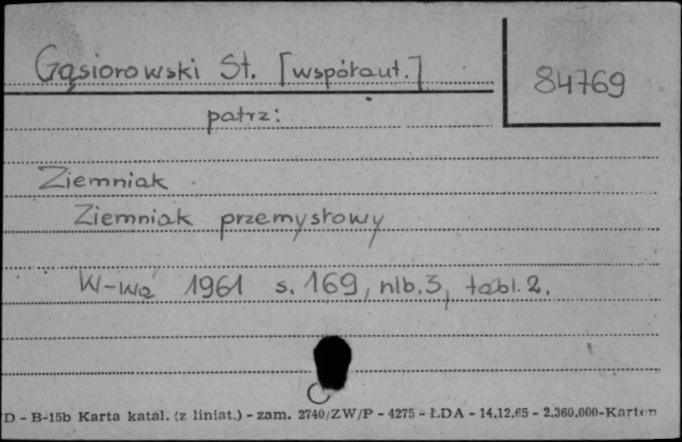 Gąsiorowski St. [współaut.]
84769
patrz:
Ziemniak
Ziemniak przemysłowy
W-wa 1961 s. 169, nlb. 3, tabl. 2.
D - B-15b Karta katal. (z liniat.) - zam. 2740/ZW/P - 4275 - ŁDA - 14.12.65 - 2.360.000-Karton